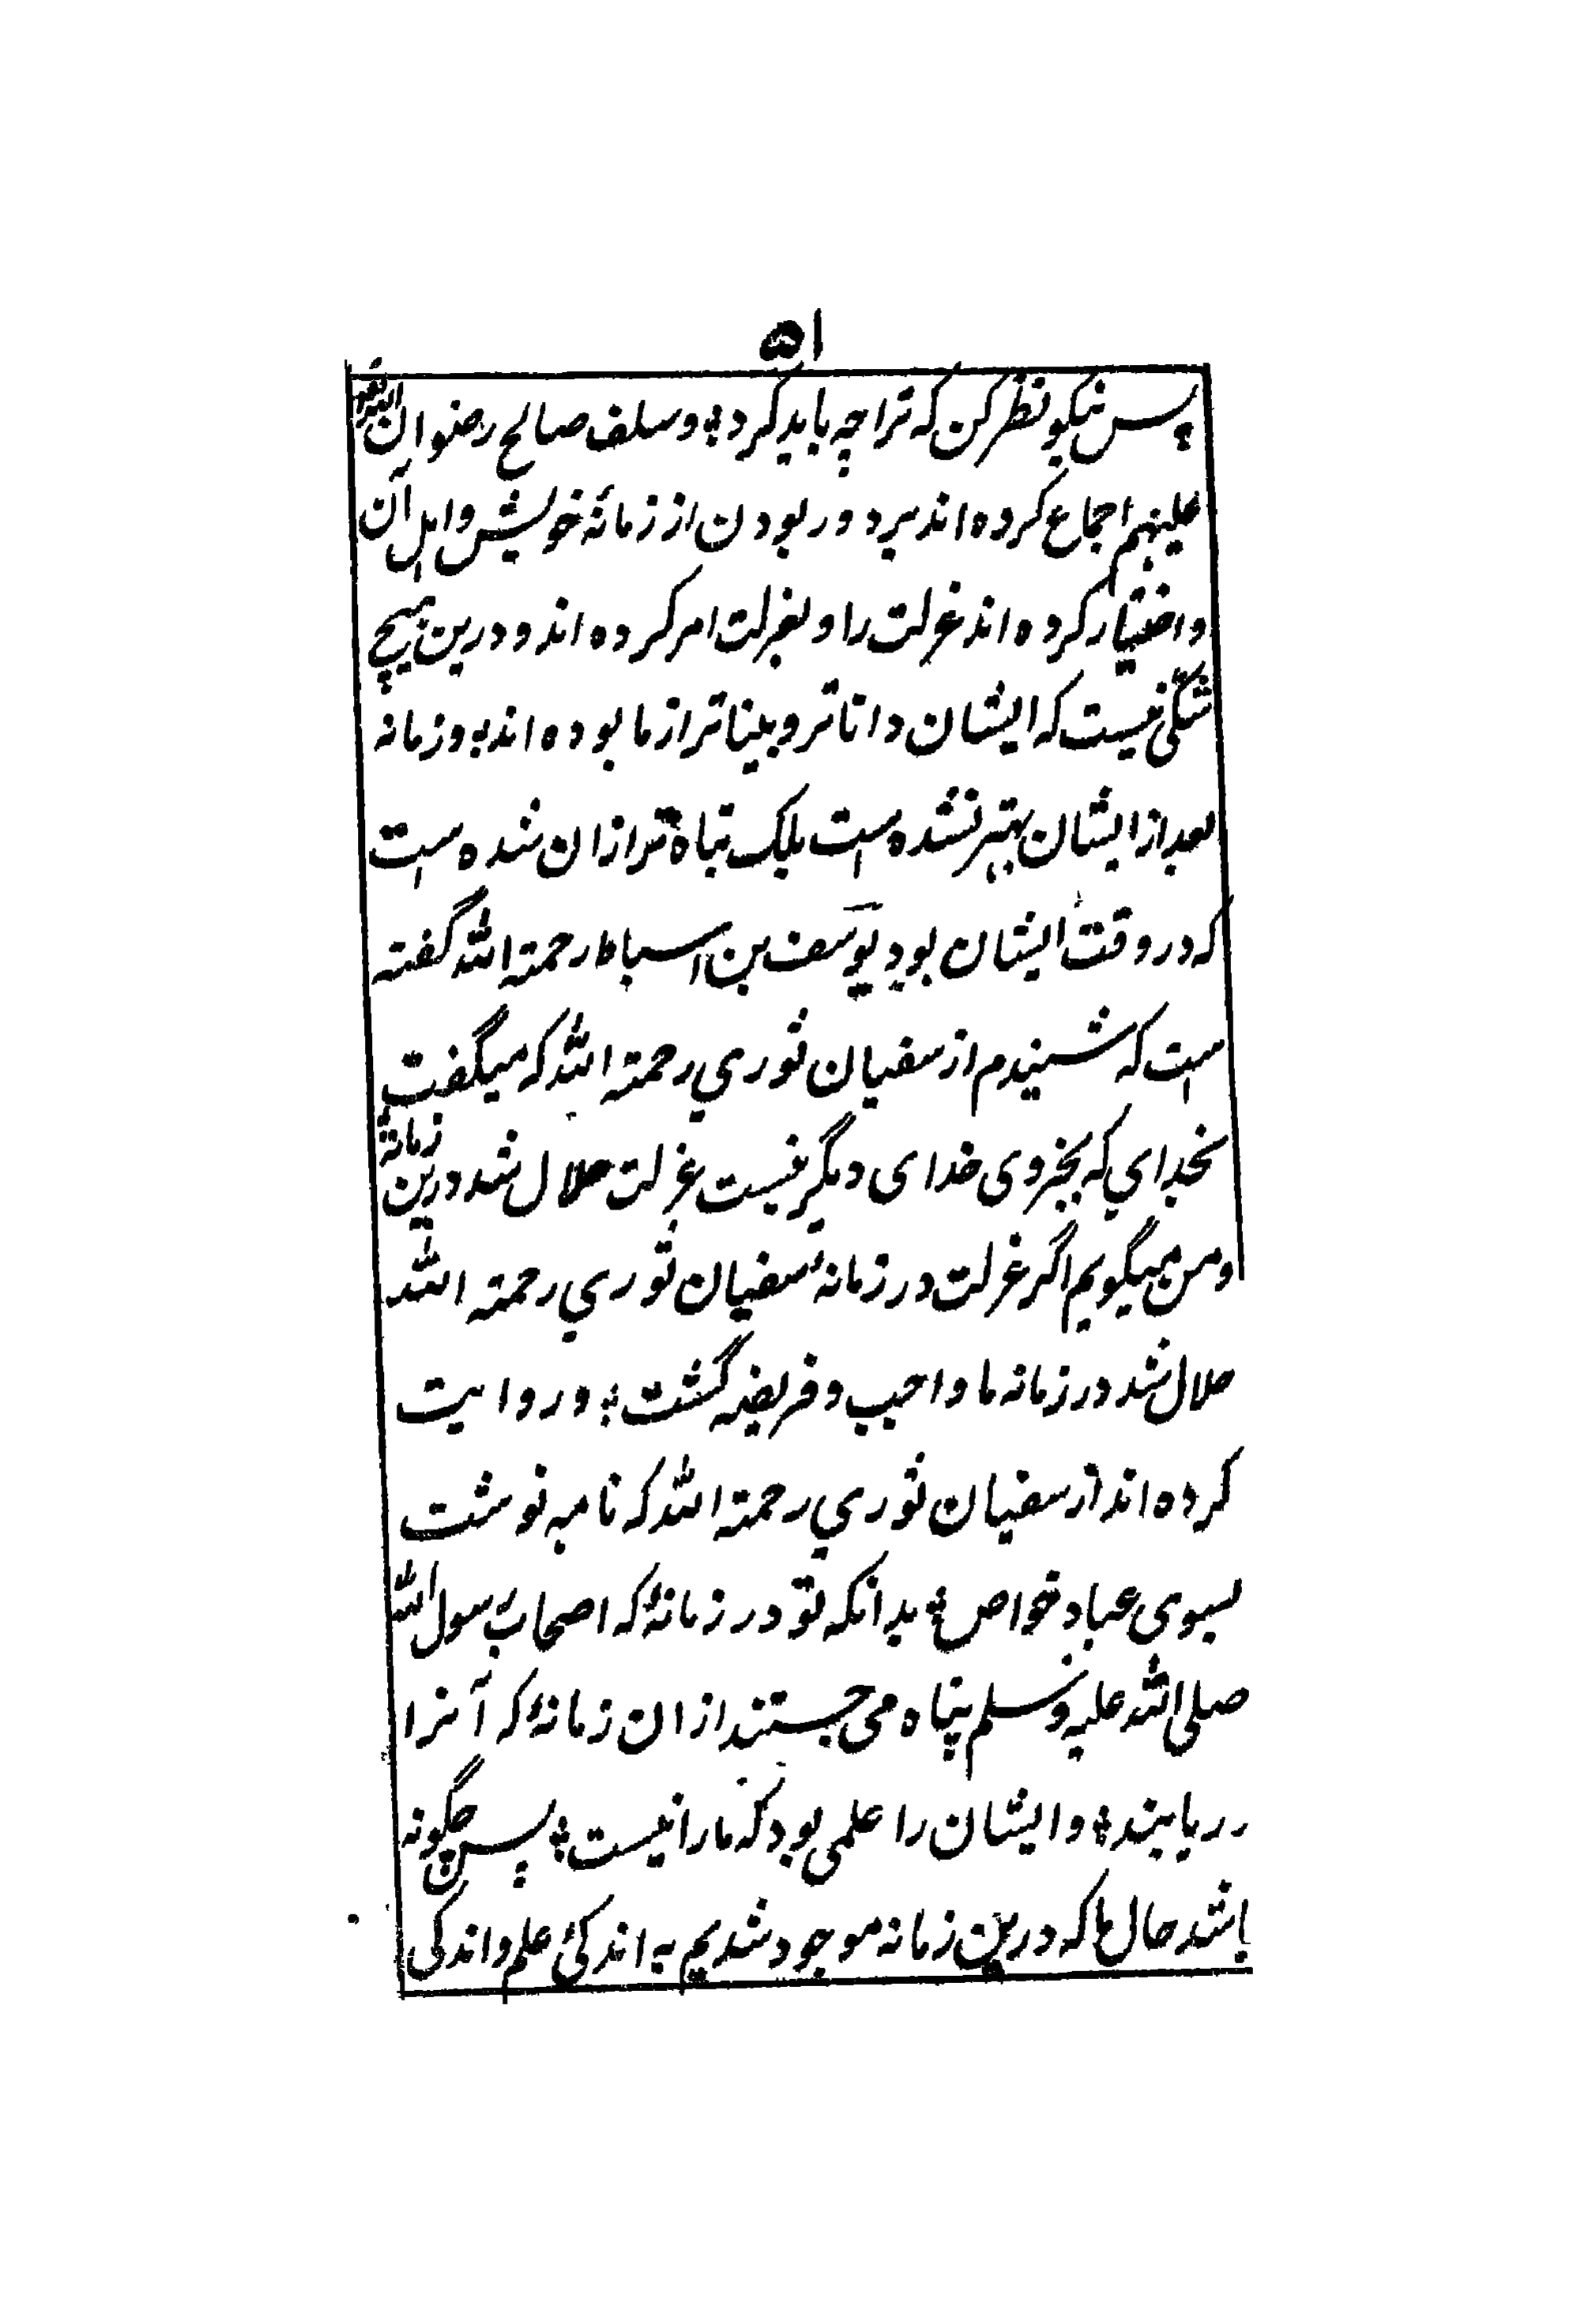 ۵۱
پس نیکو نظر کن که ترا چه باید کرد؛ و سلف صالح رضوان الله تعالی
علیهم اجماع کرده اند بر دور بودن از زمانهٔ خویش و اهل آن
و اختیار کرده اند عزلت را و بعزلت امر کرده اند و درین هیچ
شکی نیست که ایشان داناتر و بیناتر از ما بوده اند؛ و زمانه
بعد از ایشان بهتر نشده است بلک تباه تر ازان شده است
که در وقت ایشان بود یوسف بن اسباط رحمة الله گفته
است که شنیدم از سفیان ثوري رحمة الله که میگفت
بخداي که بجز وی خدای دیگر نیست عزلت حلال شد درین زمانهٔ
و من میگویم اگر عزلت در زمانهٔ سفیان ثوري رحمة الله
حلال شد در زمانه ما واجب و فریضه گشت؛ و روایت
کرده اند از سفیان ثوري رحمة الله که نامه نوشت
بسوی عباد خواص؛ بدانکه تو در زمانهٔ که اصحاب رسول الله
صلی الله علیه و سلم پناه می جستند ازان زمانهٔ که آنرا
دریابند؛ و ایشان را علمی بود که ما را نیست؛ پس چگونه
باشد حال ما که درین زمانه موجود شدیم به اندکئ علم و اندکی